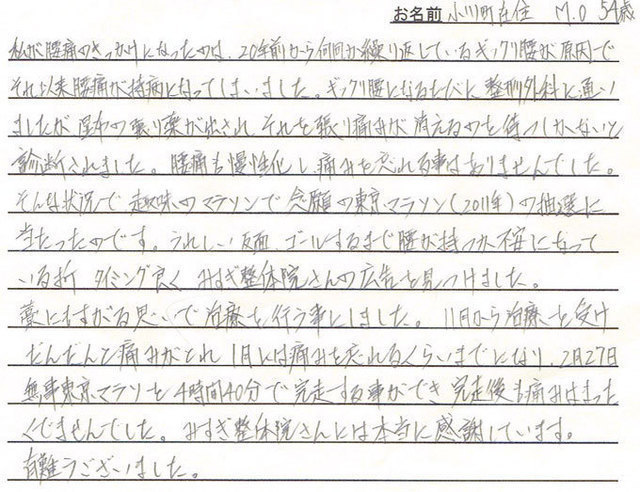 お名前 小川町在住 M.O 54歳
私が腰痛のきっかけになったのは、20年前から何回か繰り返しているギックリ腰が原因で
それ以来腰痛が持病になってしまいました。ギックリ腰になるたびに整形外科に通い
ましたが 湿布の張り薬が出され それを張り痛みが消えるのを待つしかないと
診断されました。腰痛も慢性化し痛みを忘れる事はありませんでした。
そんな状況で趣味のマラソンで念願の東京マラソン(2011年)の抽選に
当たったのです。うれしい反面、ゴールするまで腰が持つか不安になって
いる折 タイミング良く みすぎ整体院さんの広告を見つけました。
藁にもすがる思いで治療を行う事にしました。11月から治療を受け
だんだんと痛みがとれ1月には痛みを忘れるくらいまでになり、2月27日
無事東京マラソンを4時間40分で完走する事ができ完走後も痛みはまった
くでませんでした。みすぎ整体院さんには本当に感謝しています。
有難うございました。